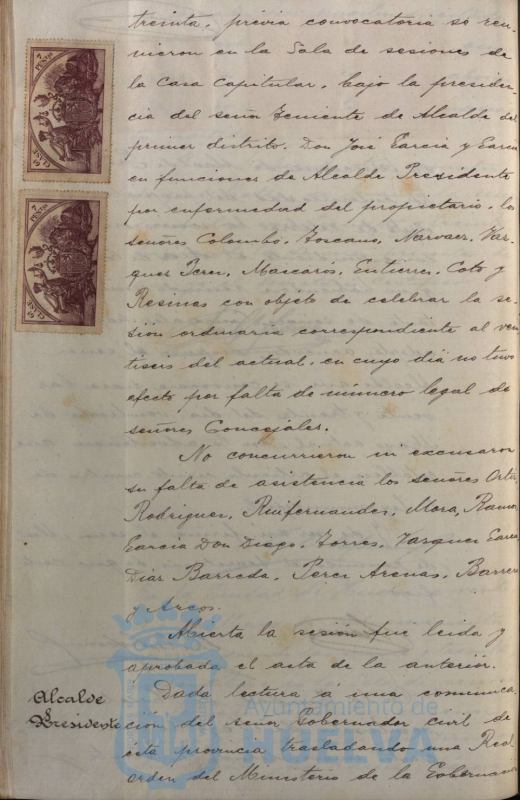 treinta, previa convocatoria se reu-
nieron en la Sala de sesiones de
la Casa Capitular, bajo la presiden-
cia del señor Teniente de Alcalde del
primer distrito, Don José García y García
en funciones de Alcalde Presidente
por enfermedad del propietario, los
señores Colombo, Toscano, Narvaez, Vaz-
quez Perez, Mascarós, Gutierrez, Coto y
Resines con objeto de celebrar la se-
sión ordinaria correspondiente al vein-
tiseis del actual, en cuyo dia no tuvo
efecto por falta de número legal de
señores Concejales.
No concurrieron ni excusaron
su falta de asistencia los señores Ortiz,
Rodriguez, Ruifernandez, Mora, Ramos,
García Don Diego, Torres, Vazquez García,
Diaz Barreda, Perez Arenas, Barrera
y Arcos.
Abierta la sesión fue leida y
aprobada el acta de la anterior.
Alcalde Presidente
Dada lectura á una comunica-
ción del señor Gobernador civil de
esta provincia trasladando una Real
orden del Ministerio de la Gobernación
6ª CLASE
7 PESETAS
6ª CLASE
7 PESETAS
Ayuntamiento de
HUELVA